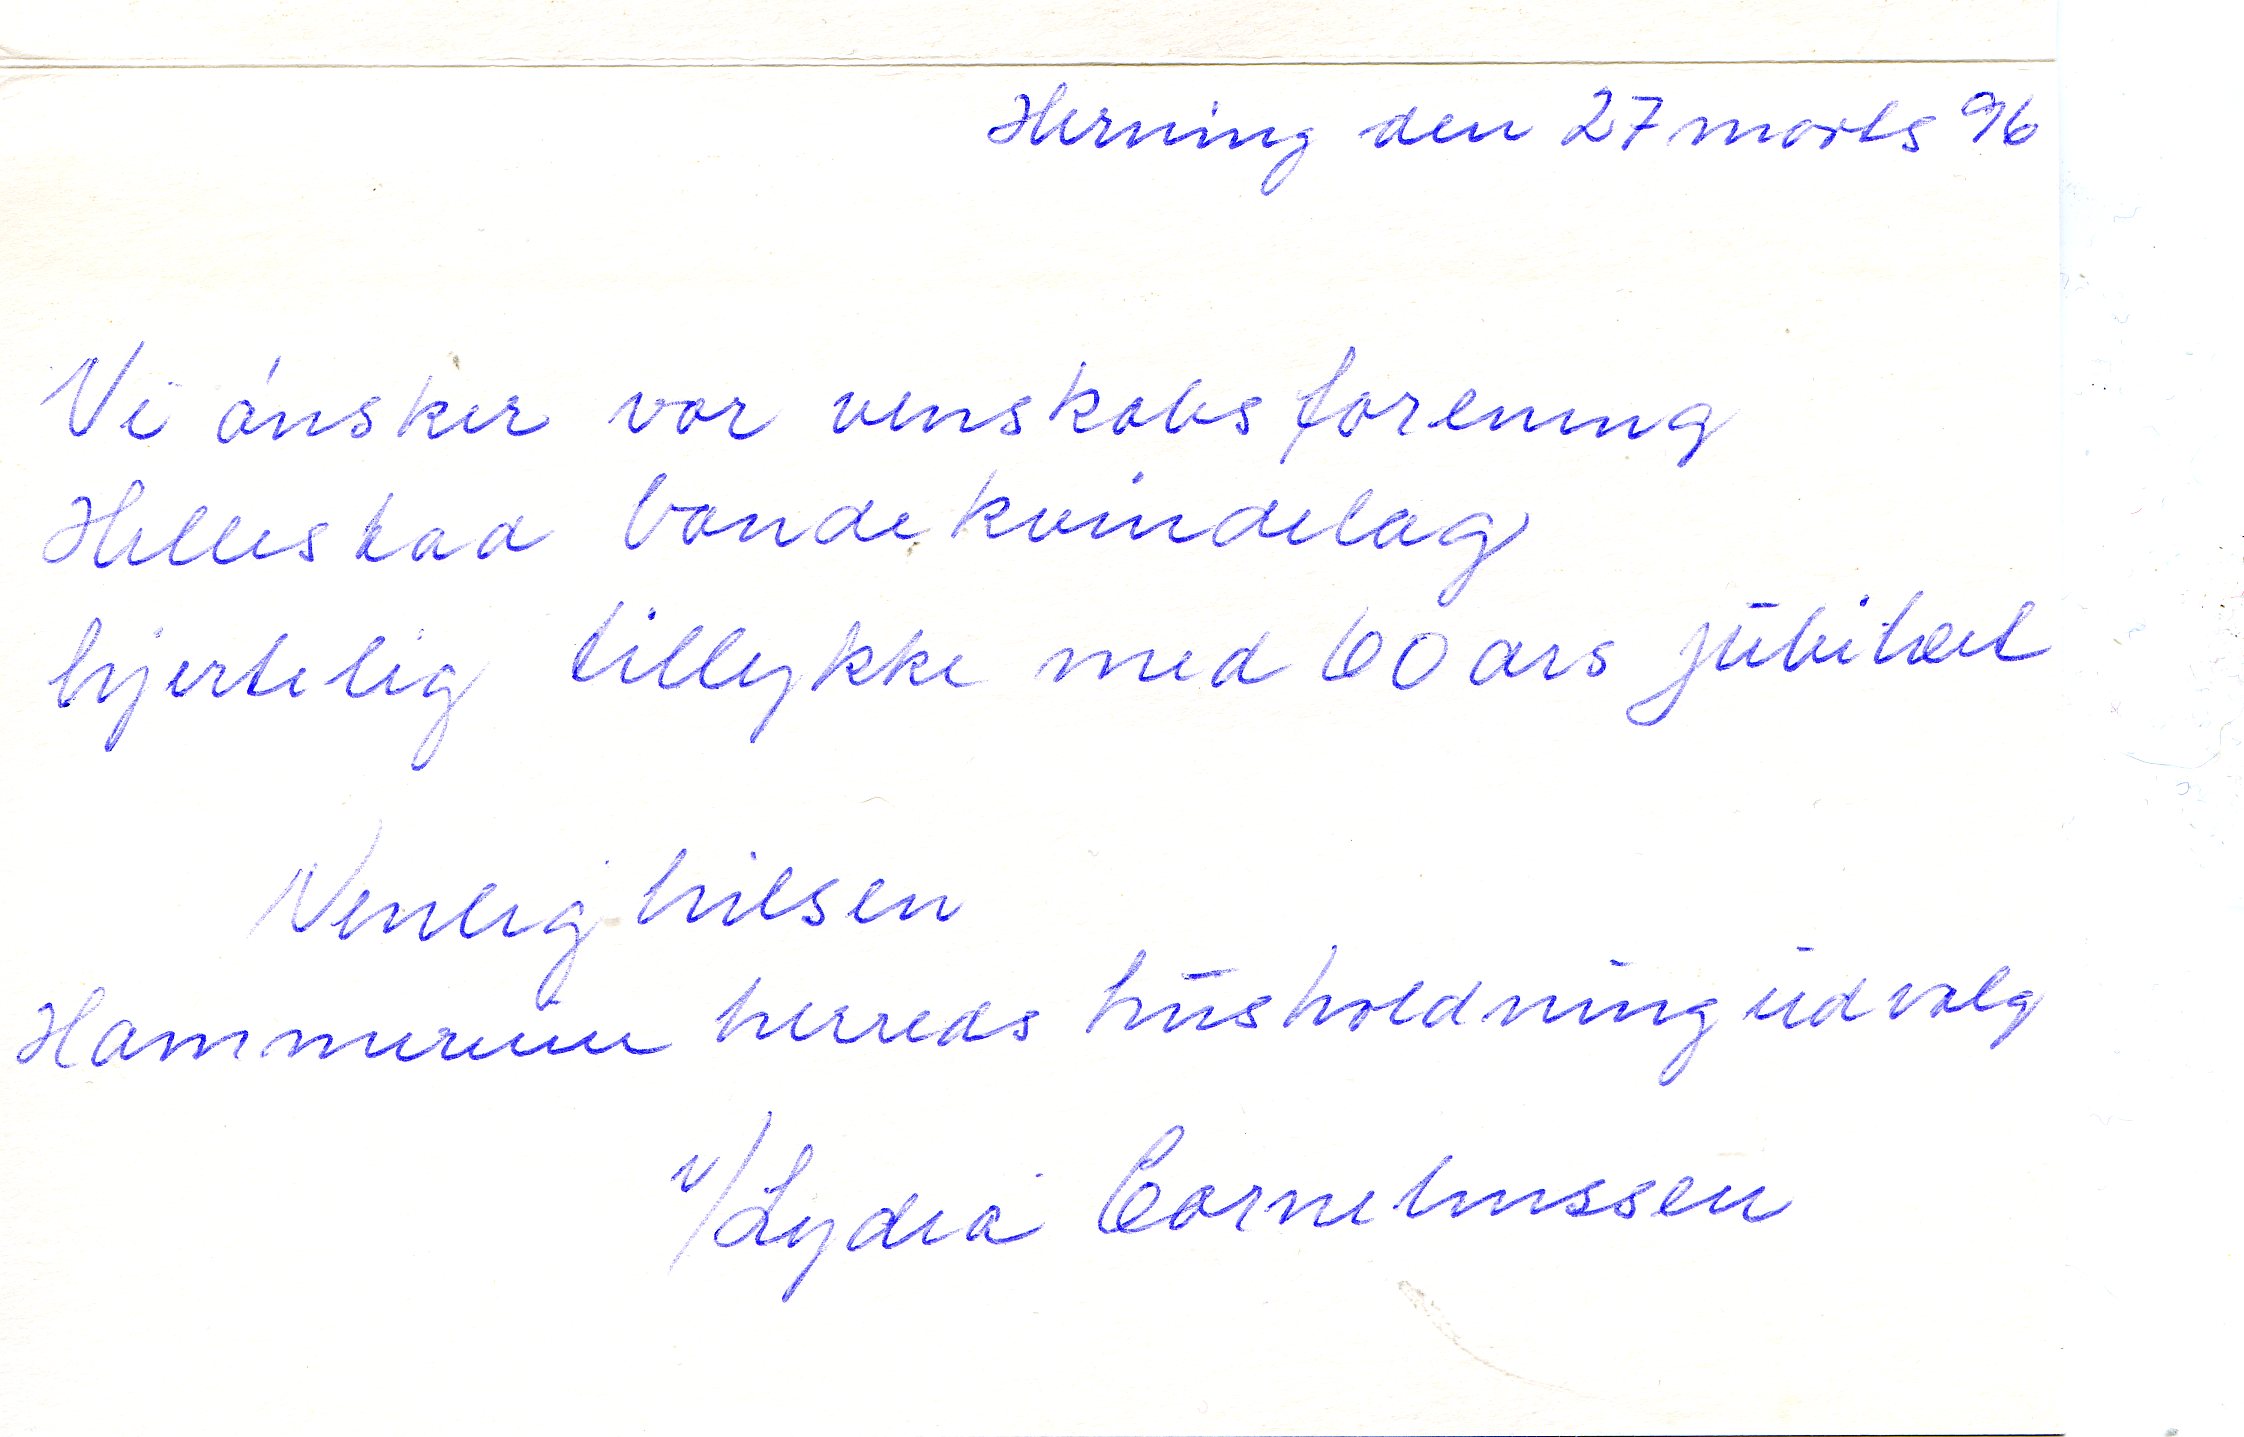 Herning den 27 marts 96
Vi ønsker vor venskabsforening
Hellestad bondekvindelag
hjertelig tillykke med 60 års jubilæet
Venlig hilsen
Hammerum herreds husholdningudvalg
v/Lydia Corneliussen